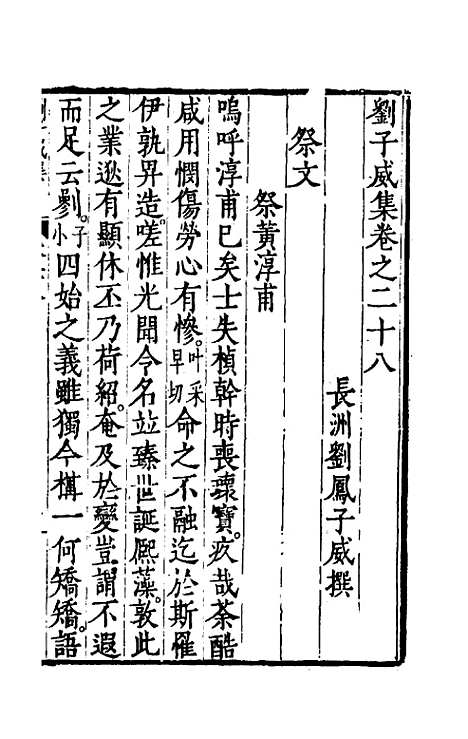 劉子威集卷之二十八
長洲劉鳳子威撰
祭文
祭黃淳甫
嗚呼淳甫已矣士失楨幹時喪瓌寶。疚哉荼酷
咸用憫傷勞心有慘。叶采早切命之不融迄於斯罹
伊孰畀造。嗟惟光聞令名竝臻世誕熈藻。敦此
之業逖有顯休丕乃荷紹。奄及於變豈謂不遐
而足云剶。子小四始之義雖獨今構一何矯矯。語